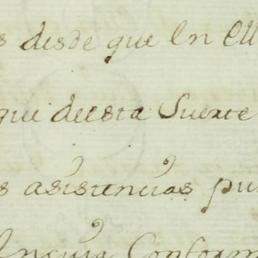 s desde que en ell
que de esta Suerte
s asistencias pu
Conform